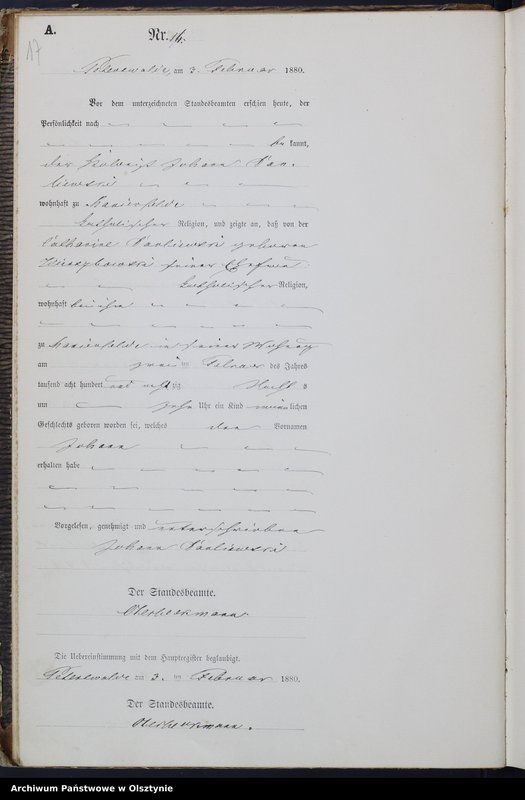 A.
Nr. 16.
17
Peterswalde, am 3. Februar 1880.
Vor dem unterzeichneten Standesbeamten erschien heute, der
Persönlichkeit nach
be kannt,
der Johann
wohnhaft zu Marienfelde
katholischer Religion, und zeigte an, daß von der
Catharine geborenen
seiner Ehefrau
katholischer Religion,
wohnhaft bei ihm
zu Marienfelde in seiner Wohnung
am zwei ten Februar des Jahres
tausend acht hundert und acht zig Nachts
um zehn Uhr ein Kind männlichen
Geschlechts geboren worden sei, welches den Vornamen
Johann
erhalten habe
Vorgelesen, genehmigt und unterschrieben
Johann
Der Standesbeamte.
Die Uebereinstimmung mit dem Hauptregister beglaubigt.
Peterswalde am 3. ten Februar 1880.
Der Standesbeamte.
Archiwum Państwowe w Olsztynie